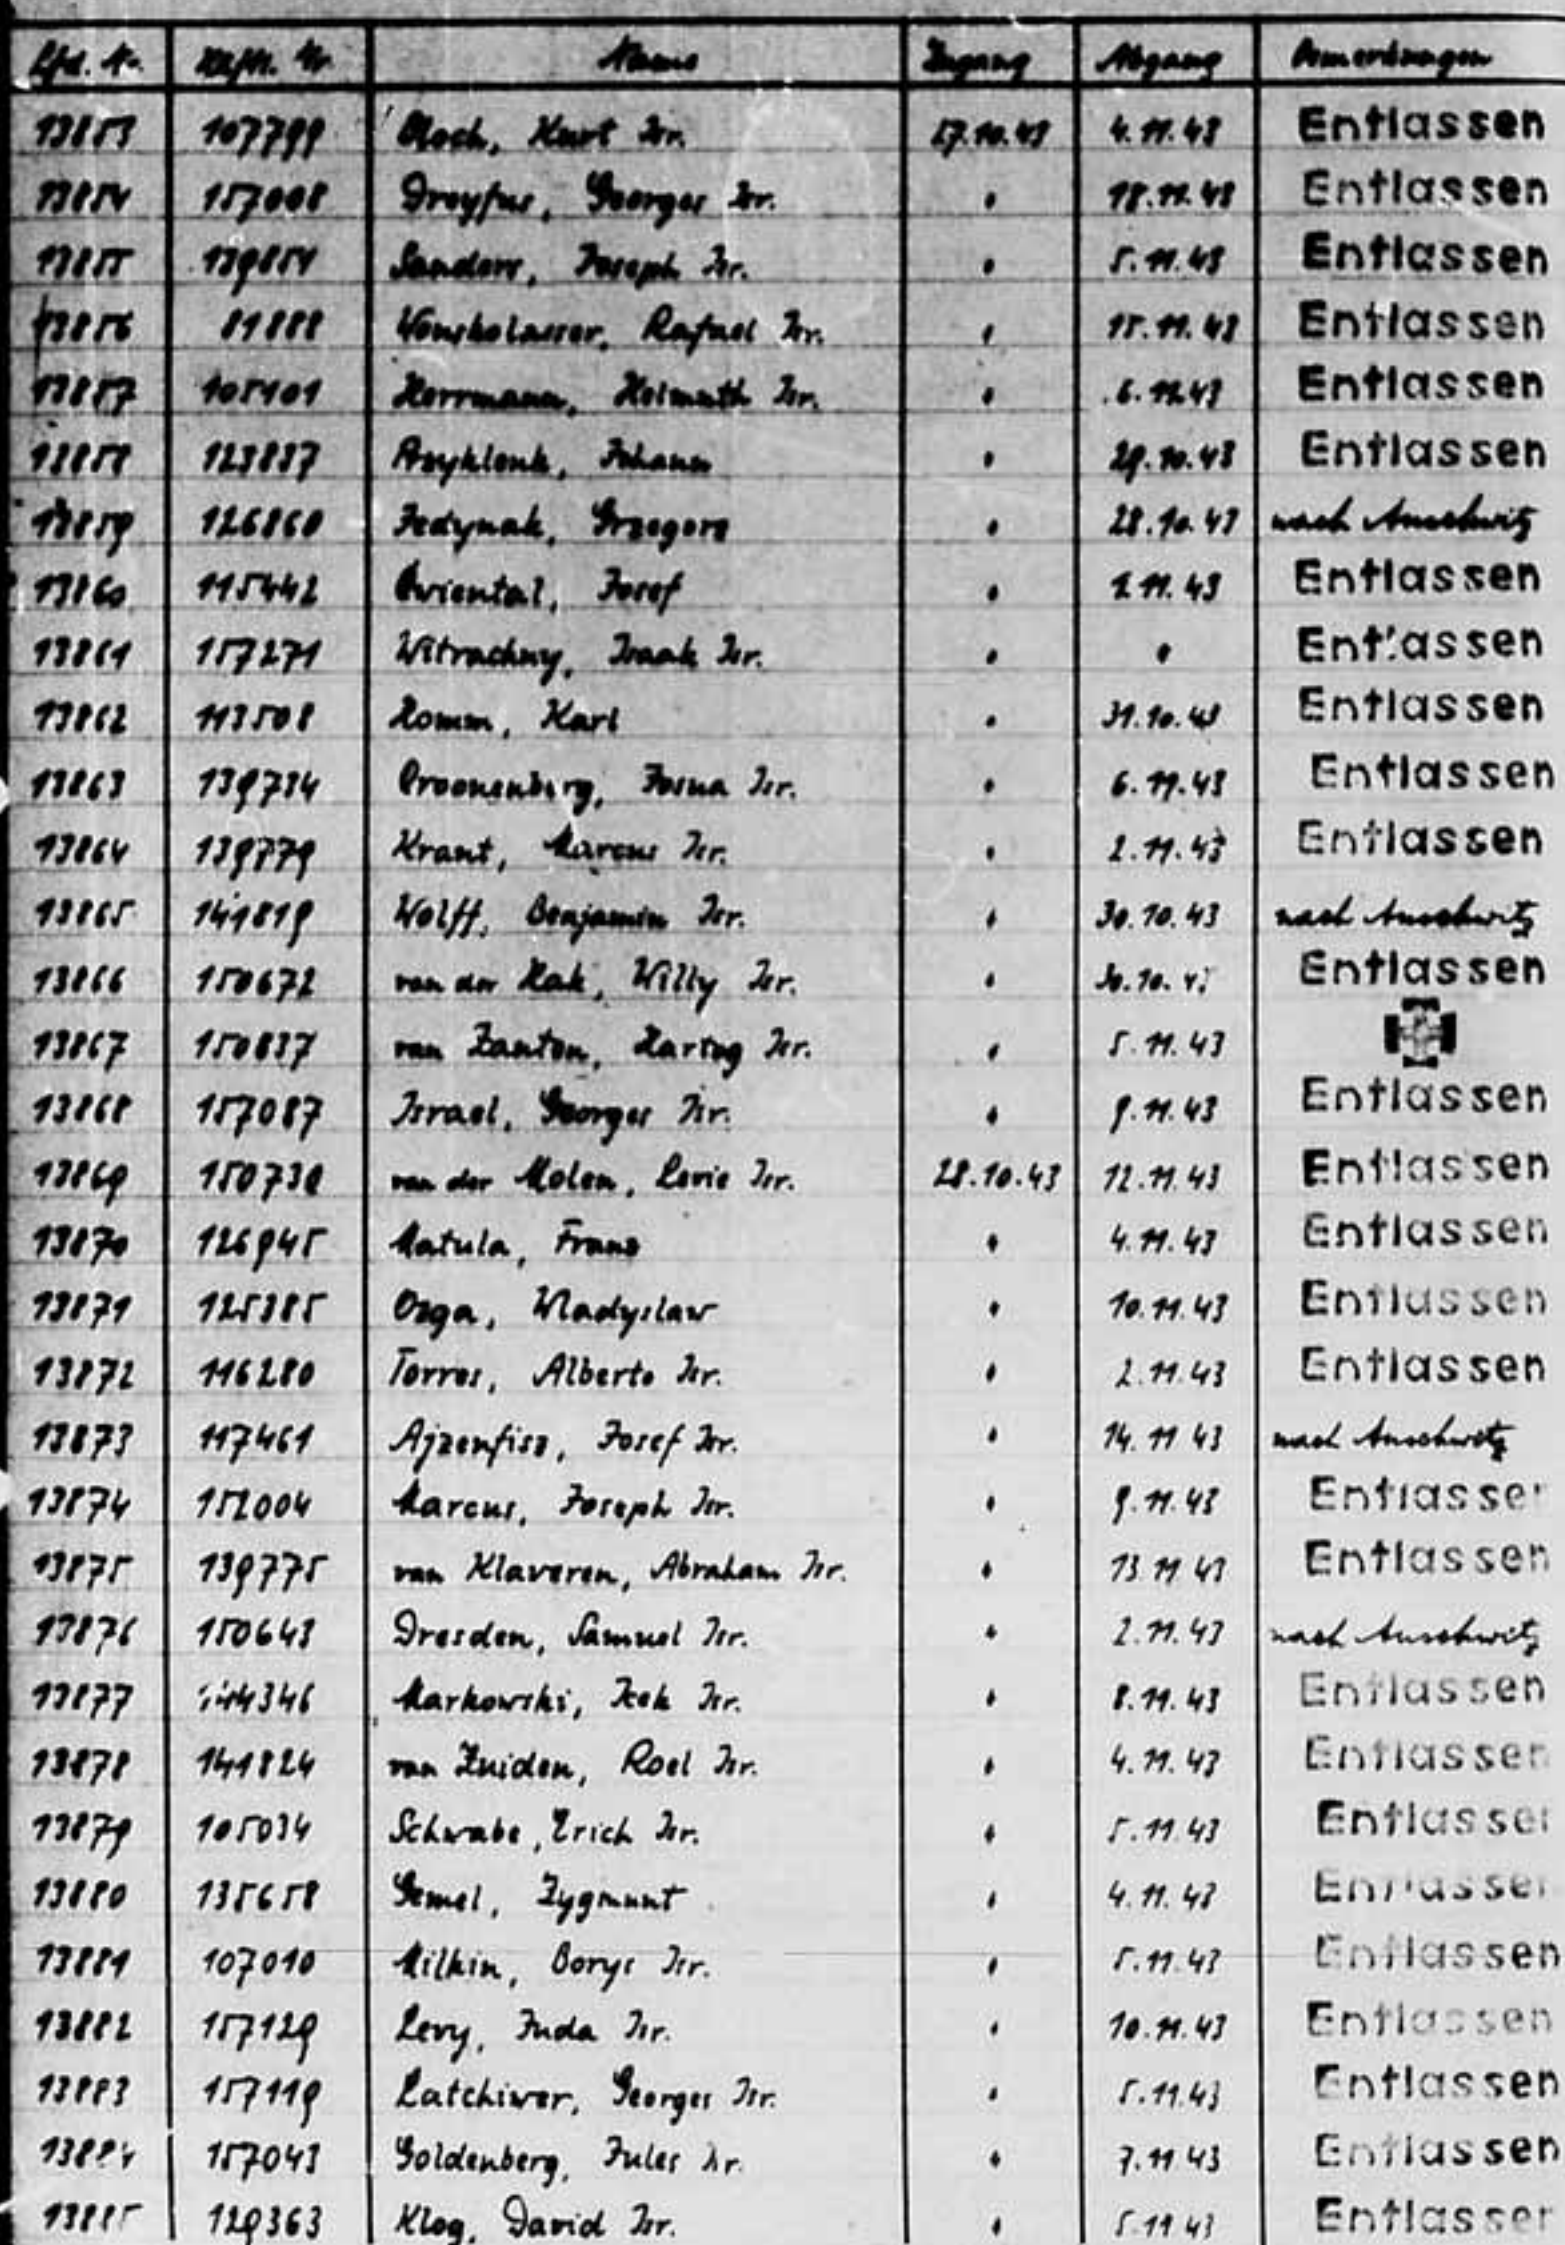 Lfd. Nr. Häftl. Nr. Name Zugang Abgang Anmerkungen
13853 107799 Bloch, Kurt Isr. 27.10.43 4.11.43 Entlassen
13854 157008 Dreyfus, Georges Isr. " 18.11.43 Entlassen
13855 139851 Sanders, Joseph Isr. " 5.11.43 Entlassen
13856 81888 Rafael Isr. " 15.11.43 Entlassen
13857 105101 Herrmann, Helmuth Isr. " 6.11.43 Entlassen
13858 123837 Przyklenk, Johann " 29.10.43 Entlassen
13859 126860 Jedynak, Grzegorz " 28.10.43 nach Auschwitz
13860 115442 Oriental, Josef " 2.11.43 Entlassen
13861 157271 Witrachny, Isaak Isr. " " Entlassen
13862 113508 Homm, Karl " 31.10.43 Entlassen
13863 139734 Croonenberg, Josua Isr. " 6.11.43 Entlassen
13864 139779 Krant, Marcus Isr. " 2.11.43 Entlassen
13865 141819 Wolff, Benjamin Isr. " 30.10.43 nach Auschwitz
13866 150672 van der Hak, Willy Isr. " 30.10.43 Entlassen
13867 150837 van Zanten, Hartog Isr. " 5.11.43
13868 157087 Israel, Georges Isr. " 9.11.43 Entlassen
13869 150730 van der Molen, Levie Isr. 28.10.43 12.11.43 Entlassen
13870 126945 Matula, Franz " 4.11.43 Entlassen
13871 125385 Ozga, Wladyslaw " 10.11.43 Entlassen
13872 116280 Torres, Alberto Isr. " 2.11.43 Entlassen
13873 117461 Ajzenfisz, Josef Isr. " 14.11.43 nach Auschwitz
13874 152004 Marcus, Joseph Isr. " 9.11.43 Entlassen
13875 139775 van Klaveren, Abraham Isr. " 13.11.43 Entlassen
13876 150643 Dresden, Samuel Isr. " 2.11.43 nach Auschwitz
13877 144346 Markowski, Icek Isr. " 8.11.43 Entlassen
13878 141824 van Zuiden, Roel Isr. " 4.11.43 Entlassen
13879 105034 Schwabe, Erich Isr. " 5.11.43 Entlassen
13880 135658 Gemel, Zygmunt " 4.11.43 Entlassen
13881 107010 Milkin, Borys Isr. " 5.11.43 Entlassen
13882 157129 Levy, Juda Isr. " 10.11.43 Entlassen
13883 157119 Latchiwer, Georges Isr. " 5.11.43 Entlassen
13884 157043 Goldenberg, Jules Isr. " 7.11.43 Entlassen
13885 129363 Klog, David Isr. " 5.11.43 Entlassen